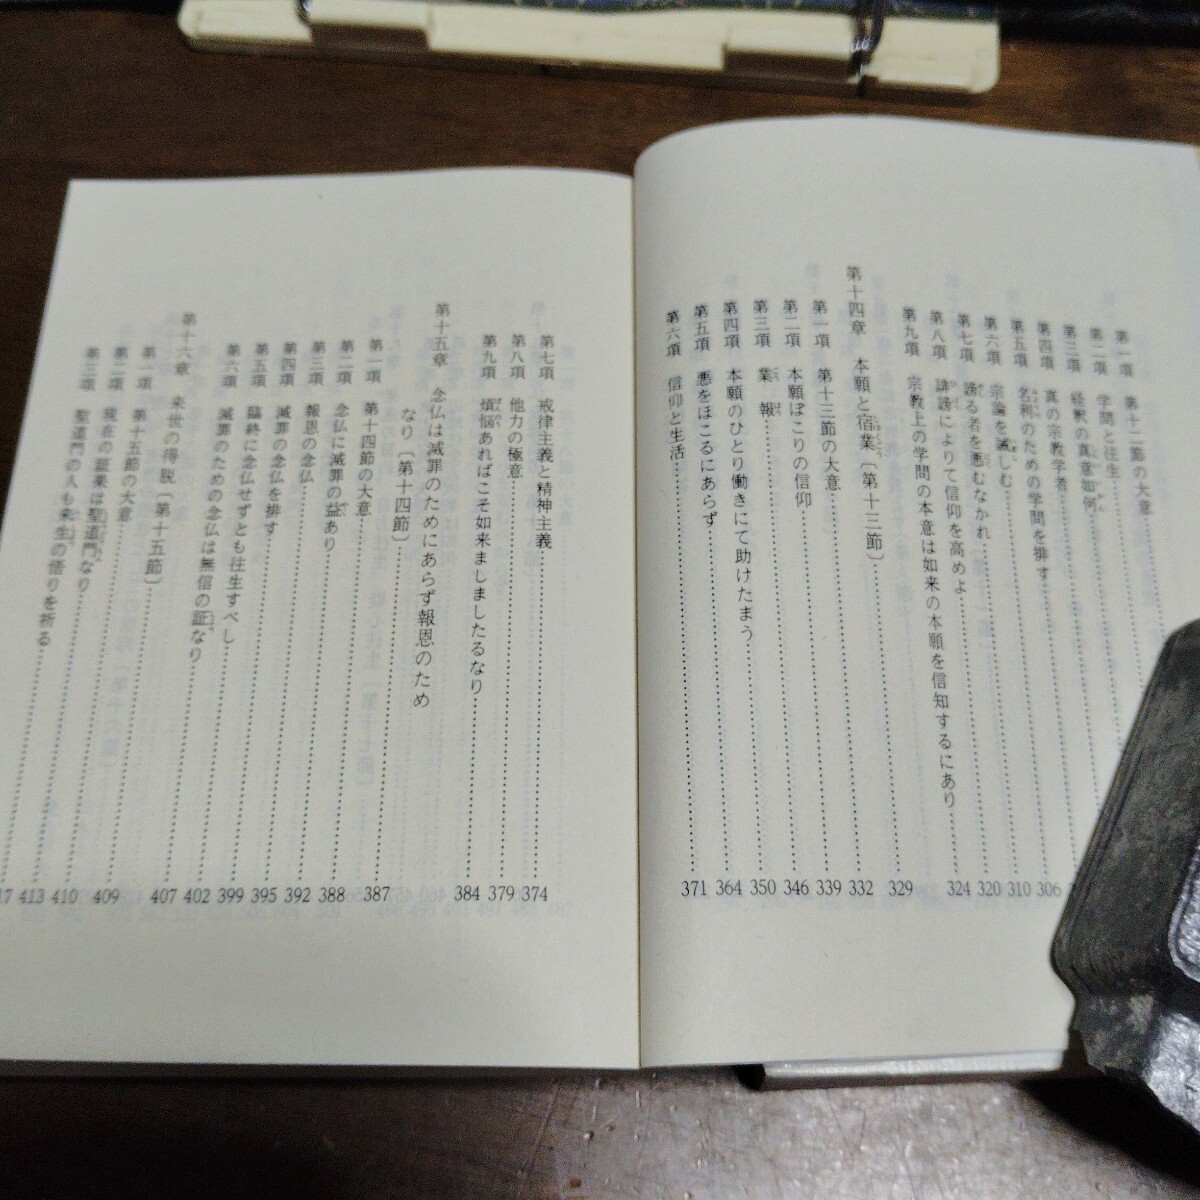 第一項 第十二節の大意
第二項 学問と往生
第三項 経釈の真意如何
第四項 真の宗教学者
第五項 名利のための学問を排す
第六項 宗論を誡しむ 306
第七項 謗る者を悪むなかれ 310
第八項 誹謗によりて信仰を高めよ 320
第九項 宗教上の学問の本意は如来の本願を信知するにあり 324
第十四章 本願と宿業〔第十三節〕 329
第一項 第十三節の大意 332
第二項 本願ぼこりの信仰 339
第三項 業報 346
第四項 本願のひとり働きにて助けたまう 350
第五項 悪をほこるにあらず 364
第六項 信仰と生活 371
第七項 戒律主義と精神主義 374
第八項 他力の極意 379
第九項 煩悩あればこそ如来ましましたるなり 384
第十五章 念仏は滅罪のためにあらず報恩のため
なり〔第十四節〕 387
第一項 第十四節の大意 388
第二項 念仏に滅罪の益あり 392
第三項 報恩の念仏 395
第四項 滅罪の念仏を排す 399
第五項 臨終に念仏せずとも往生すべし 402
第六項 滅罪のための念仏は無信の証なり 407
第十六章 来世の得脱〔第十五節〕 409
第一項 第十五節の大意 410
第二項 現在の証果は聖道門なり 413
第三項 聖道門の人も来生の悟りを祈る 17